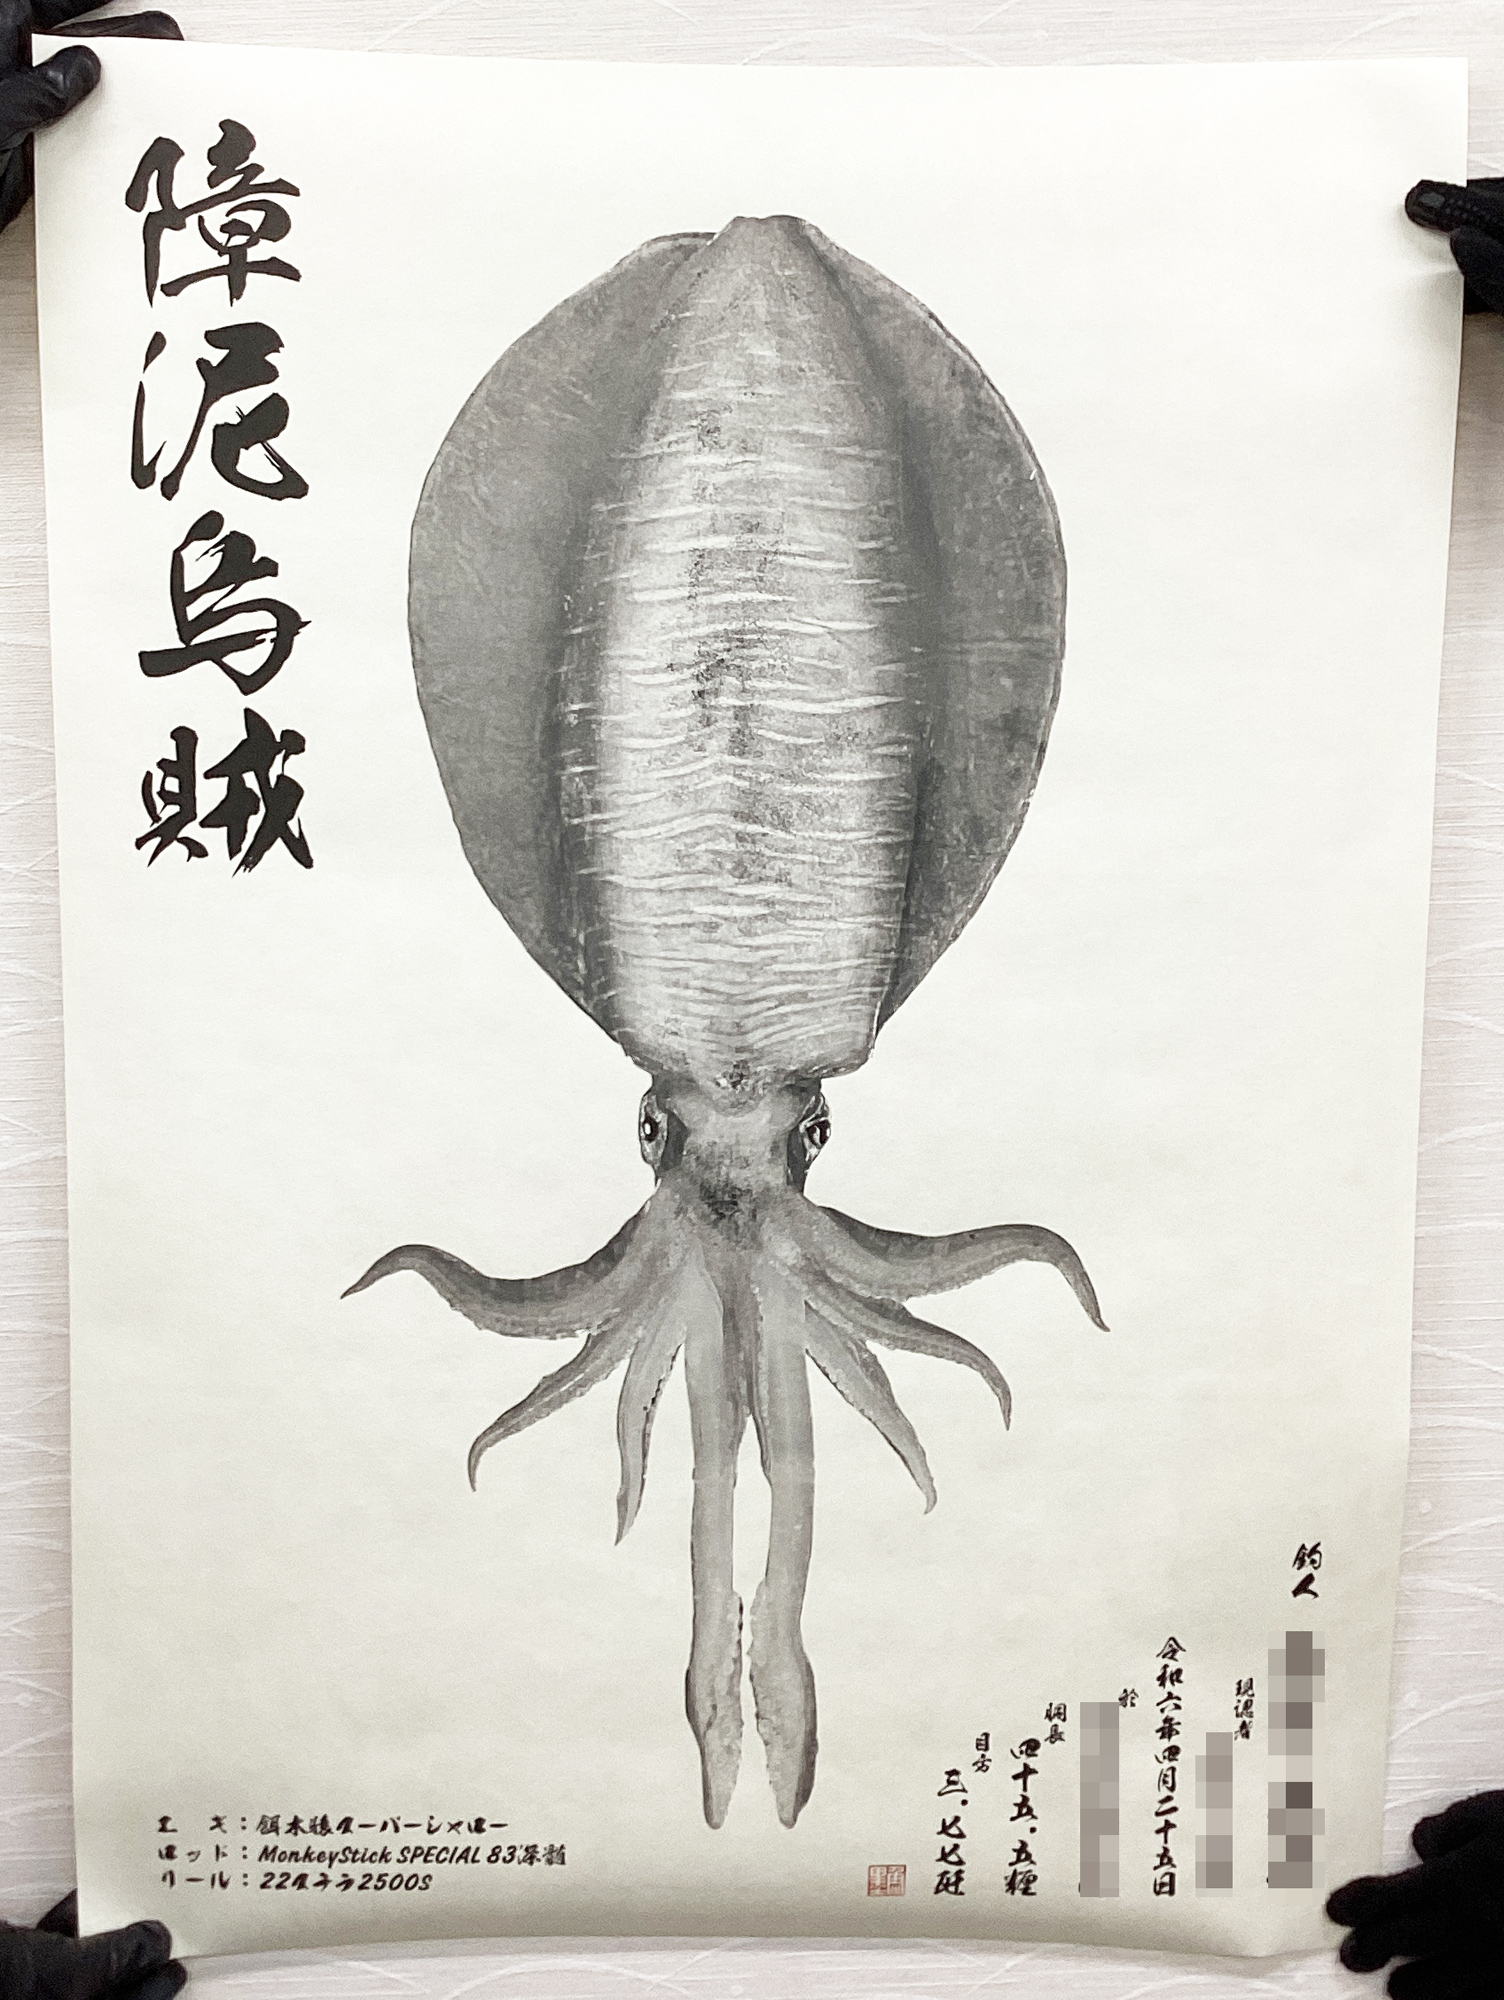 障泥烏賊
釣人
現認者
令和六年四月二十五日
於
胴長 四十五.五糎
目方 三.七七瓩
エ ギ：餌木猿スーパーシャロー
ロッド：MonkeyStick SPECIAL 83深髄
リール：22ステラ2500S